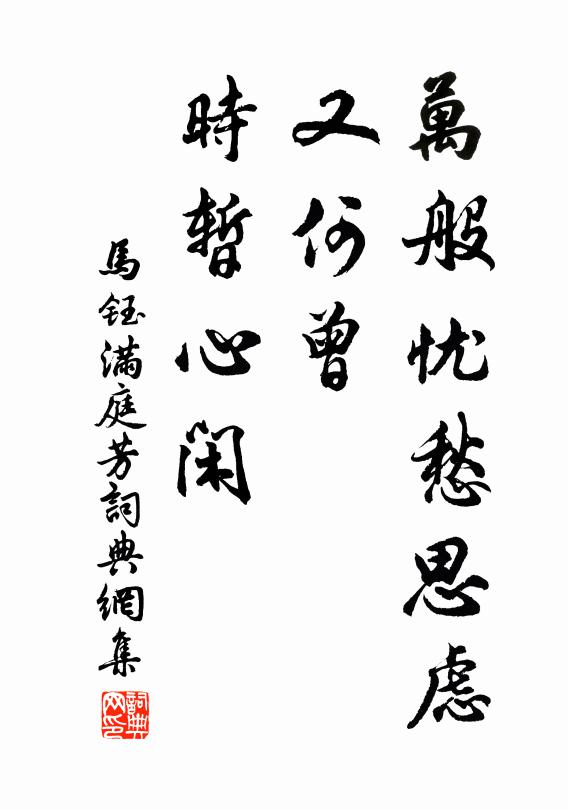 萬般忧愁思慮
又何曾
時暫心闲
馬鈺滿庭芳詞典網集
詞典网印